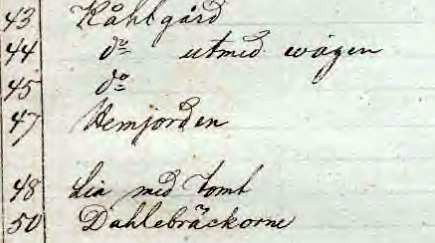 43 Kåhlgård
44 do utmed wägen
45 do
47 Hemjorden
48 Lia med tomt
50 Dahlebräckorne